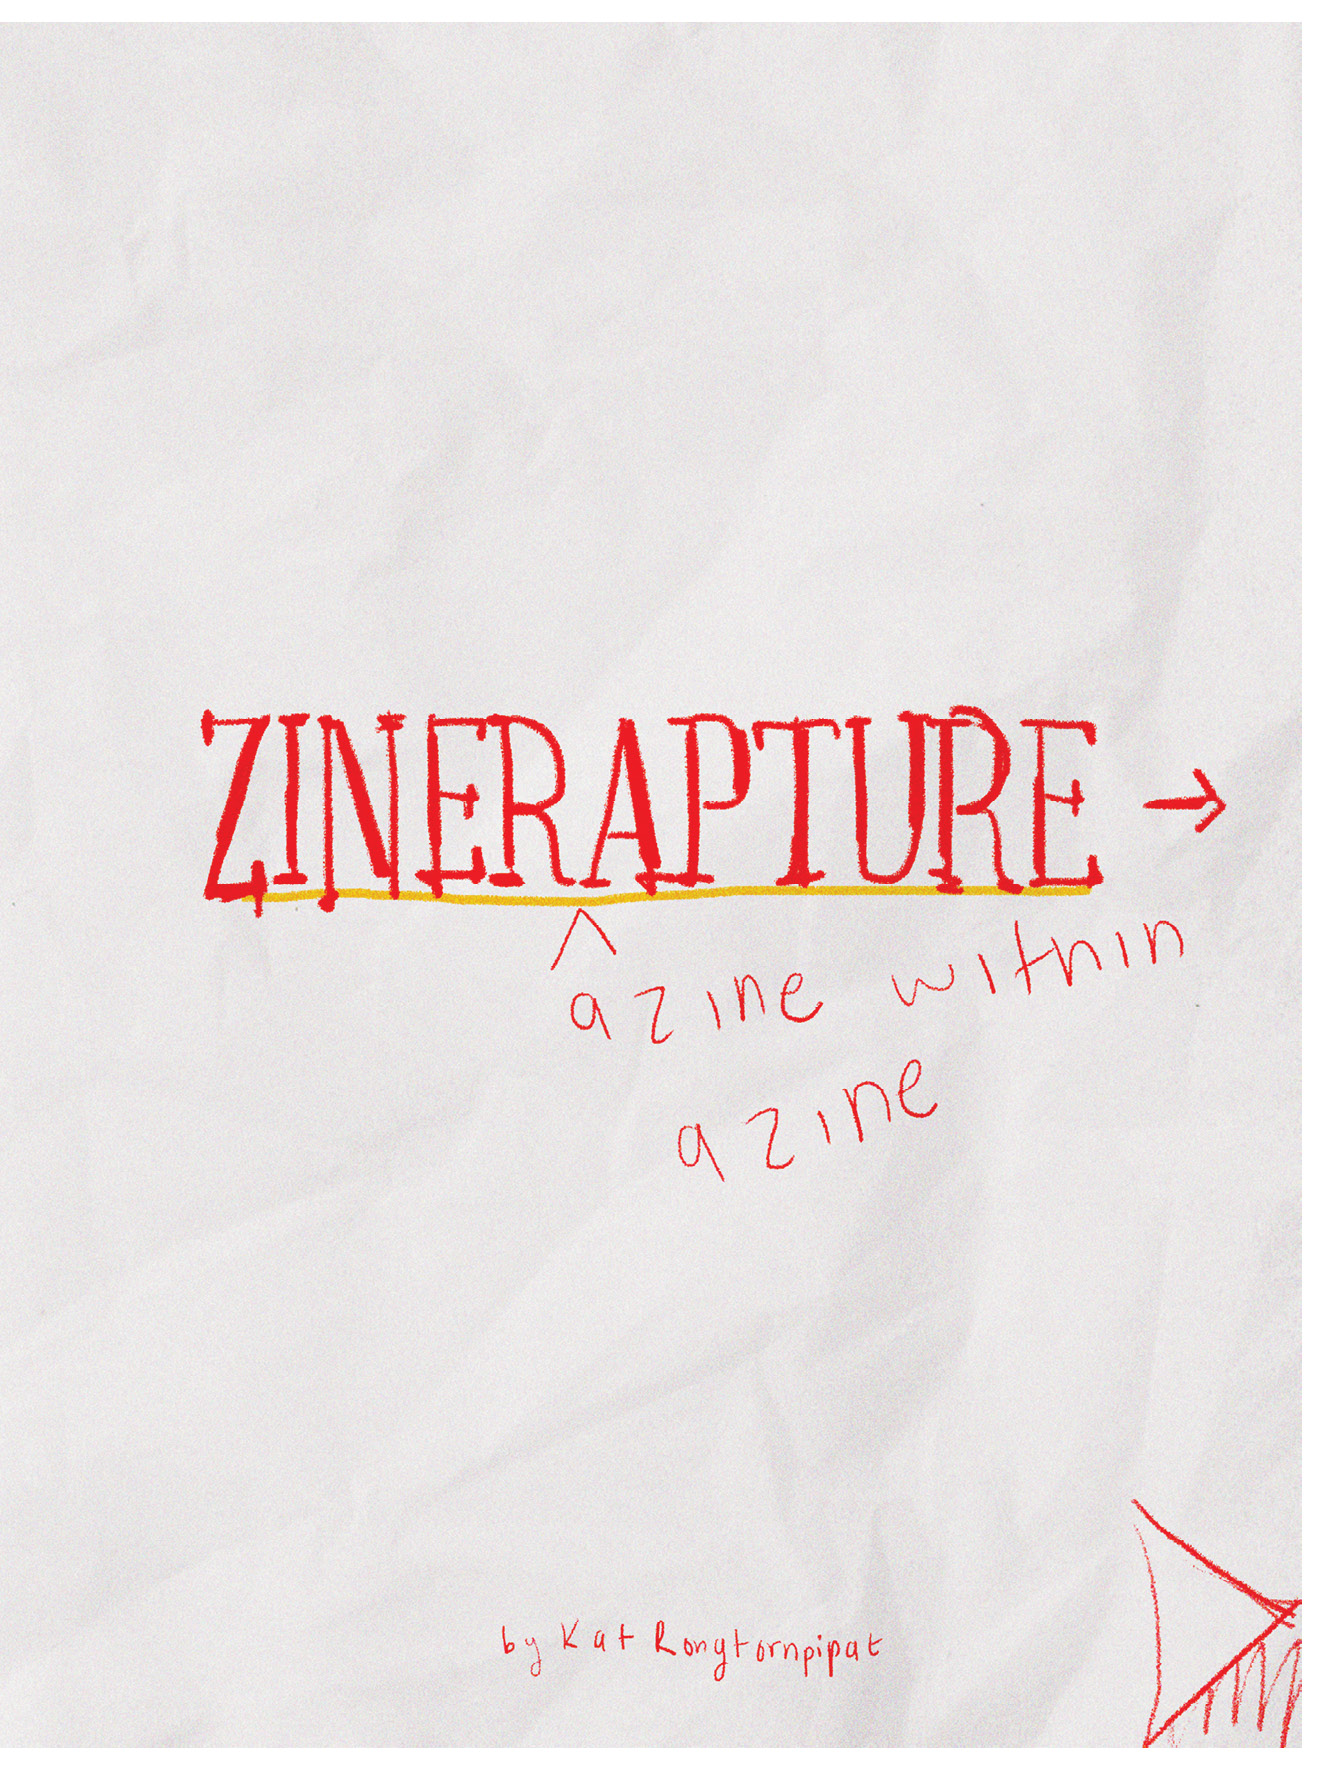 ZINERAPTURE →
^
a zine within
a zine
by Kat Rongtornpipat